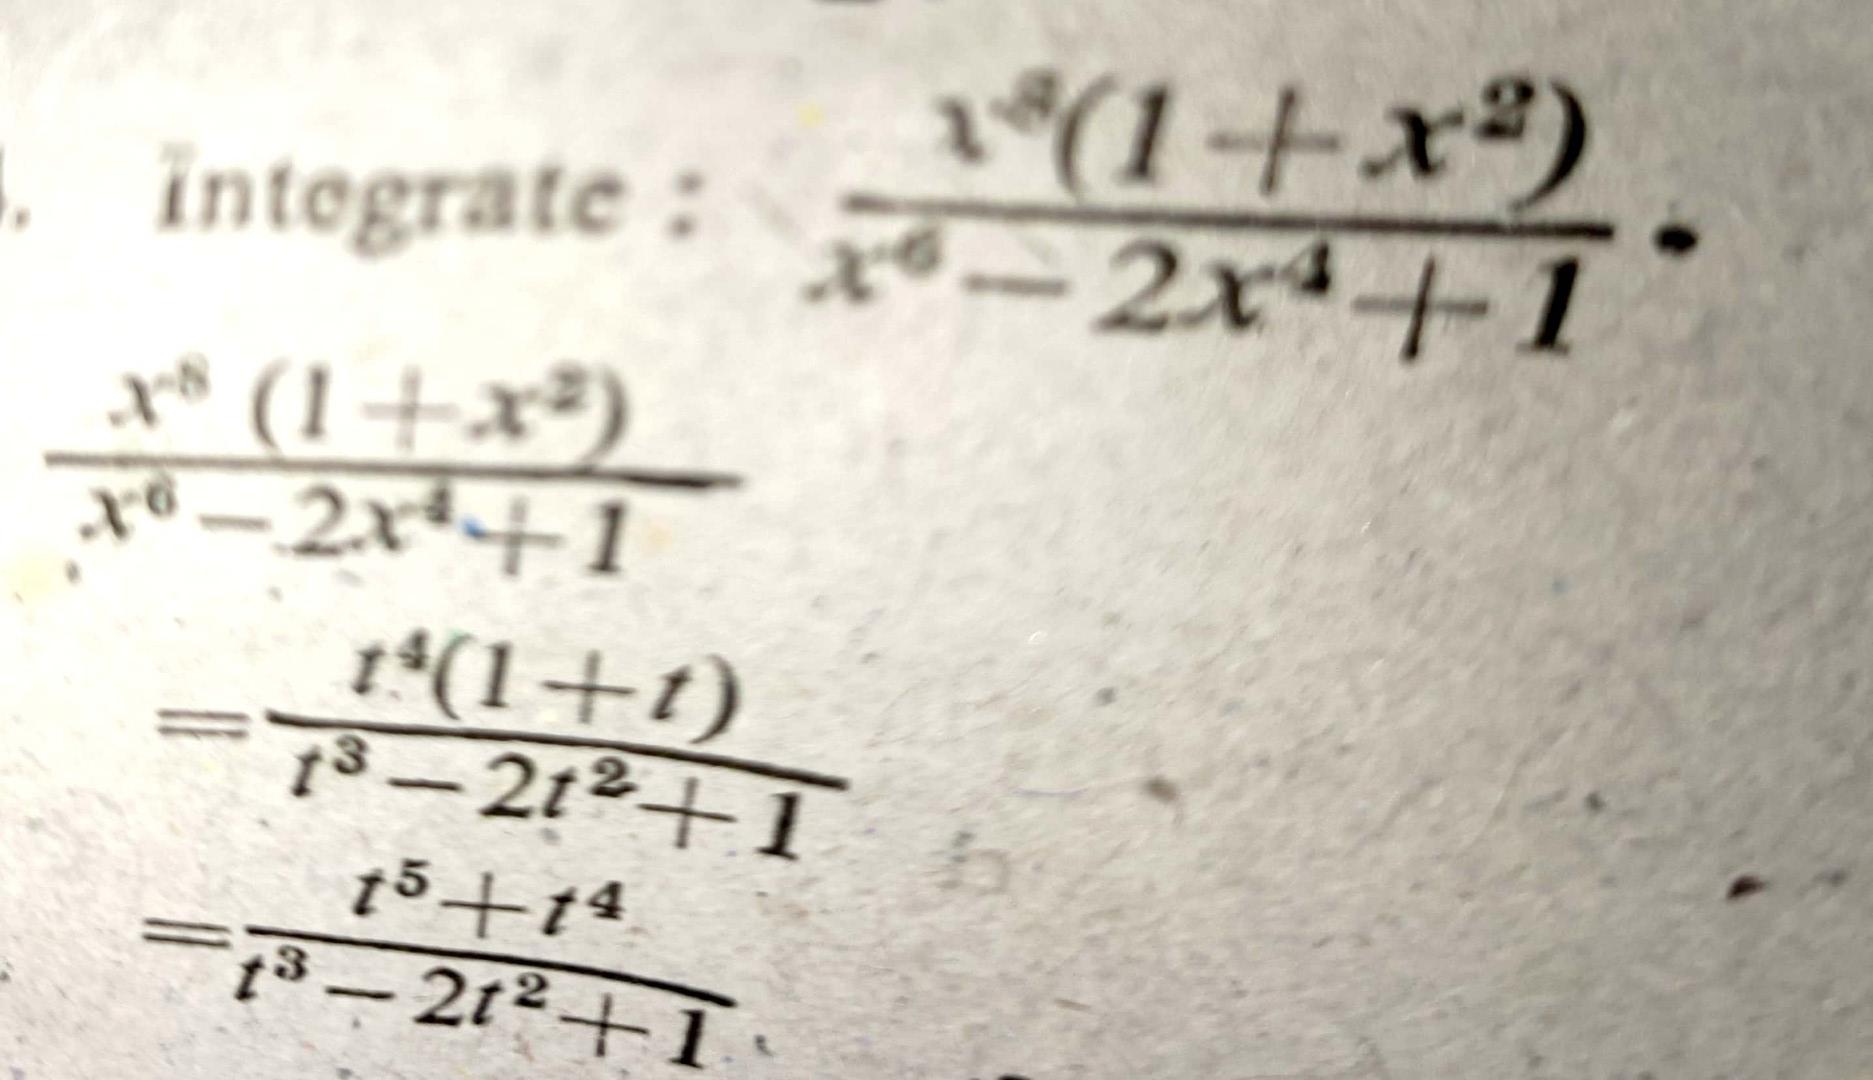 . Integrate : x⁸(1+x²) / x⁶−2x⁴+1 .
x⁸ (1+x²) / x⁶−2x⁴+1
= t⁴(1+t) / t³−2t²+1
= t⁵+t⁴ / t³−2t²+1 .